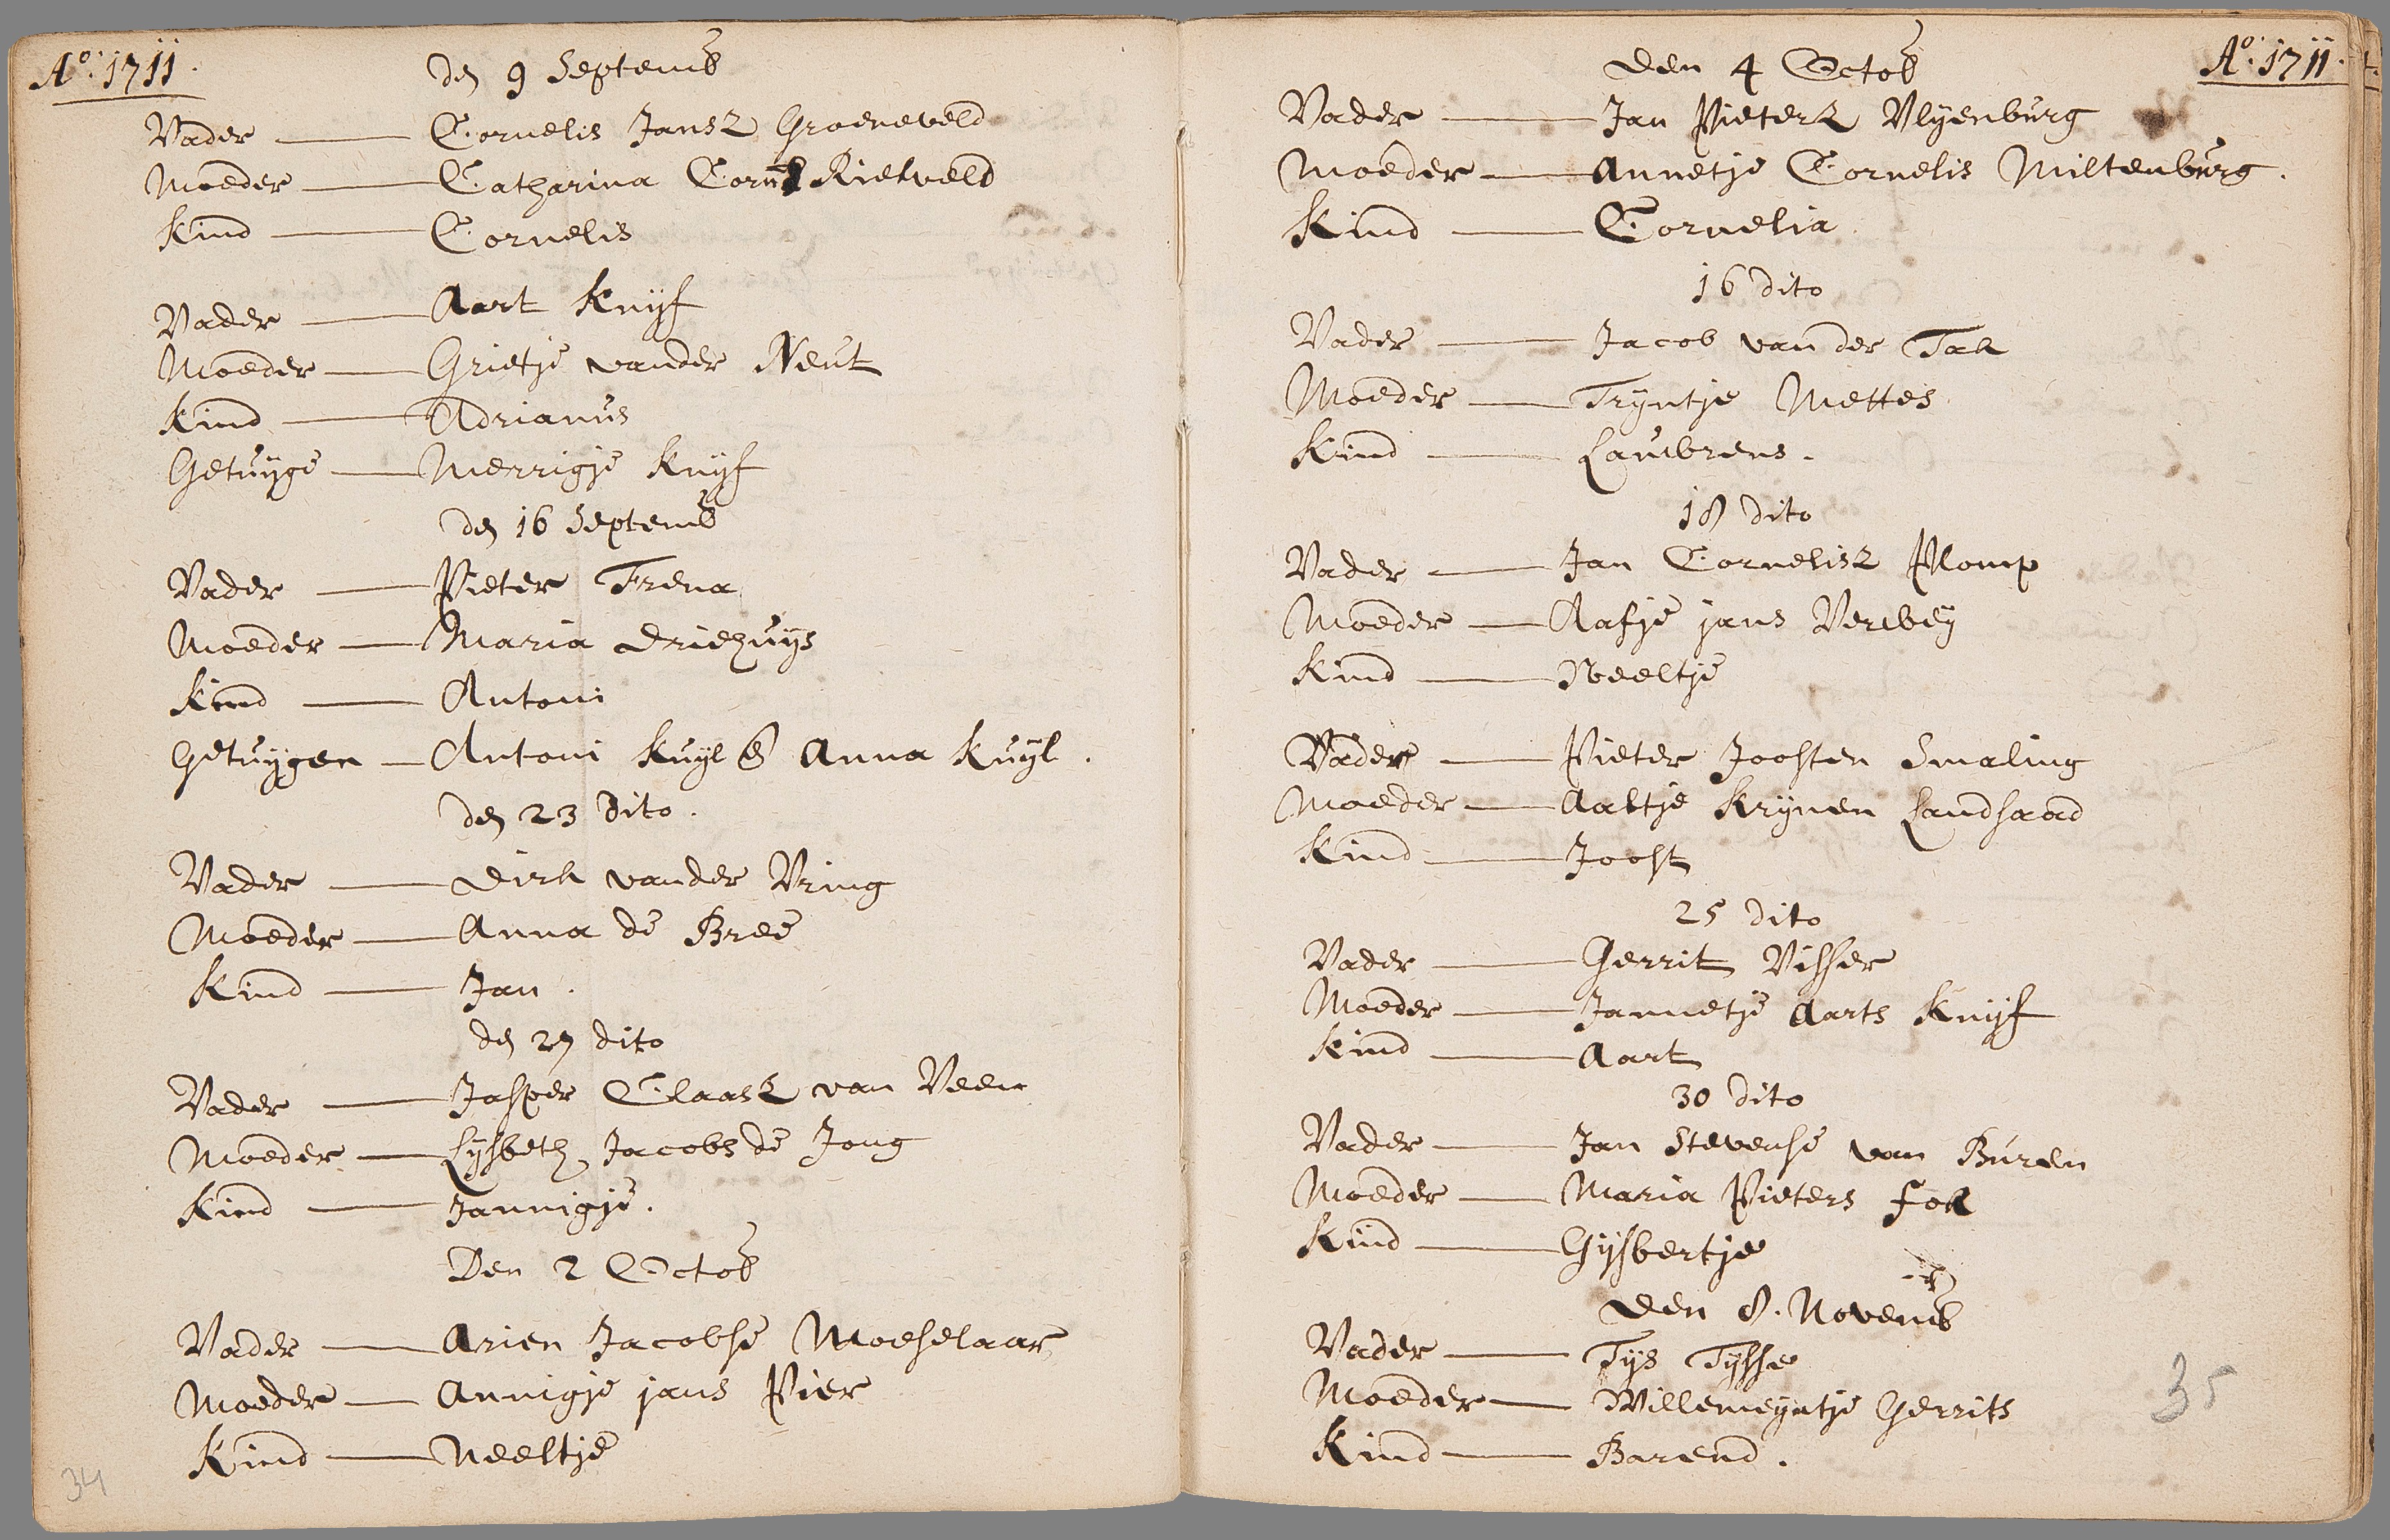 Ao. 1711.
den 9 Septemb
Vader — Cornelis Jansz Groeneveld
Moeder — Catharina Corns Rietveld
Kind — Cornelis
Vader — Aart Knijf
Moeder — Grietje vander Neut
Kind — Adrianus
Getuijge — Merrigje Knijf
den 16 Septemb
Vader — Pieter Frena
Moeder — Maria Driehuijs
Kind — Antoni
Getuijgen — Antoni Kuijl & Anna Kuijl.
den 23 Dito.
Vader — Dirk vander Vring
Moeder — Anna de Bree
Kind — Jan.
den 27 dito
Vader — Jasper Claasz van Veen
Moeder — Lijsbeth Jacobs de Jong
Kind — Jannigje.
Den 2 Octob
Vader — Arien Jacobse Moeselaar
Moeder — Annigje jans Pier
Kind — Neeltje
34
Ao. 1711.
Den 4 Octob
Vader — Jan Pietersz Vlijenburg
Moeder — Annetje Cornelis Miltenburg.
Kind — Cornelia
16 dito
Vader — Jacob van der Tak
Moeder — Trijntje Mettes
Kind — Laubrens.
18 dito
Vader — Jan Cornelisz Plomp
Moeder — Aafje jans Verweij
Kind — Neeltje
Vader — Pieter Joosten Smaling
Moeder — Aaltje Krijnen Landsaad
Kind — Joost
25 dito
Vader — Gerrit Visser
Moeder — Jannetje Aarts Knijf
Kind — Aart
30 dito
Vader — Jan Stevense van Buren
Moeder — Maria Pieters Fok
Kind — Gijsbertje
Den 8. Novemb
Vader — Tijs Tijsse
Moeder — Willemeijntje Gerrits
Kind — Barend.
35